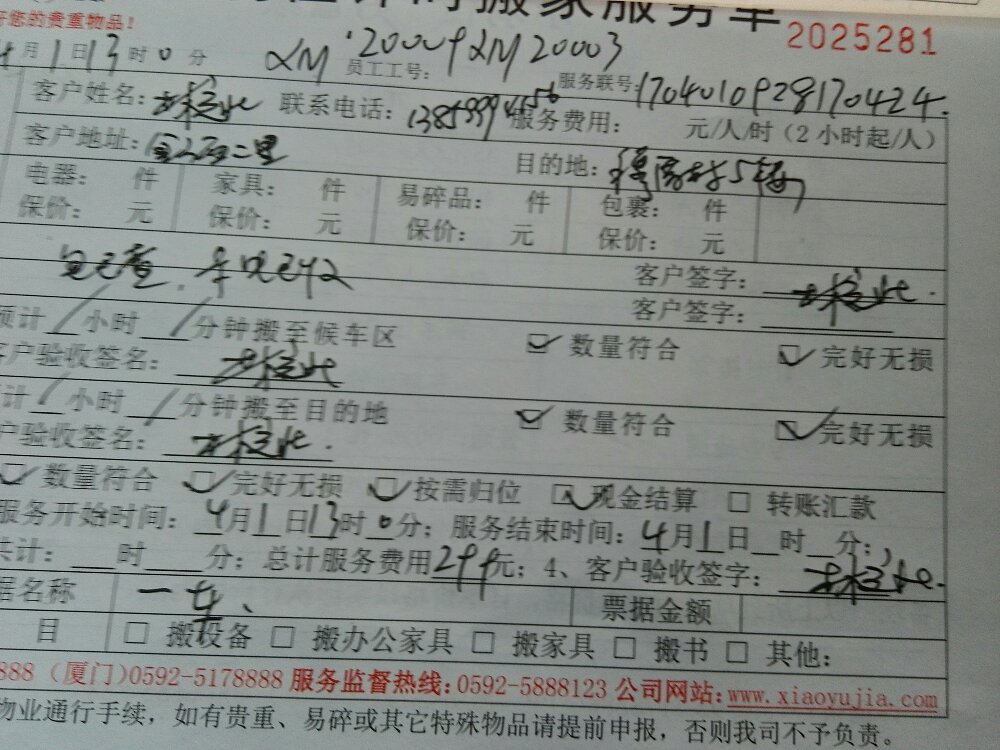 搬家服务单 2025281
好您的贵重物品！
4月1日13时0分 XM20009 XM20003
员工工号： 服务联号：1704010928170424
客户姓名： 联系电话： 服务费用： 元/人/时（2小时起/人）
客户地址： 二里 目的地：
电器： 件 家具： 件 易碎品： 件 包裹： 件
保价： 元 保价： 元 保价： 元 保价： 元
客户签字：
客户签字：
预计/小时/分钟搬至候车区 数量符合 完好无损
客户验收签名：
计/小时/分钟搬至目的地 数量符合 完好无损
户验收签名：
数量符合 完好无损 按需归位 现金结算 转账汇款
服务开始时间：4月1日13时0分；服务结束时间：4月1日 时 分；
共计： 时 分；总计服务费用299元；4、客户验收签字：
据名称 一车、 票据金额
目 搬设备 搬办公家具 搬家具 搬书 其他：
888（厦门）0592-5178888 服务监督热线：0592-5888123 公司网站：www.xiaoyujia.com
物业通行手续，如有贵重、易碎或其它特殊物品请提前申报，否则我司不予负责。